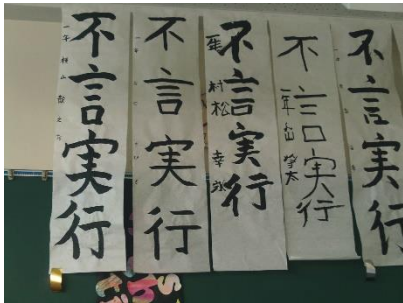 不言実行
不言実行
不言実行
一年 村松 幸
不言実行
一年
不言実行